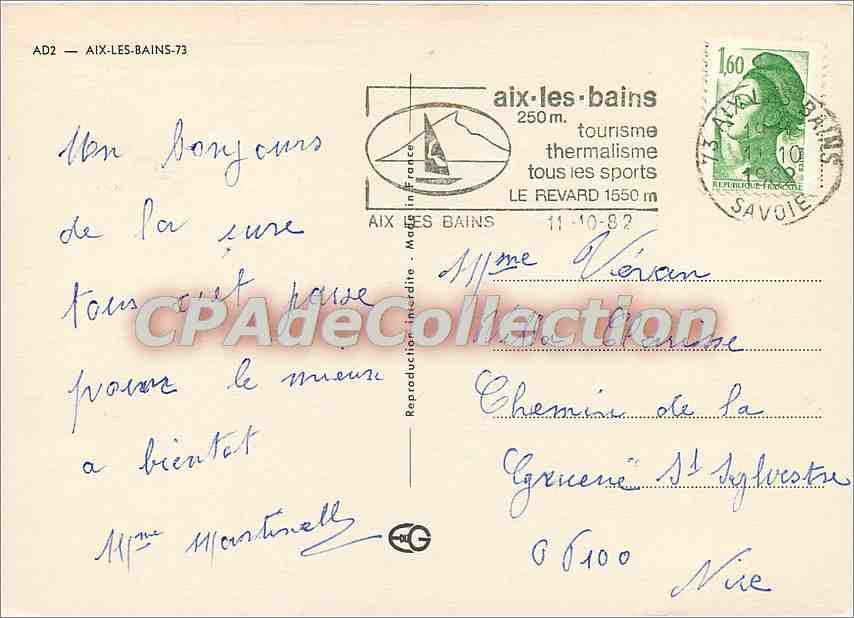 AD2 — AIX-LES-BAINS-73
Un bonjours
de la cure
tous cet passe
pour le mieux
a bientot
Mme Martinelly
Reproduction interdite - Made in France
aix-les-bains
250 m.
tourisme
thermalisme
tous les sports
LE REVARD 1550 m
AIX LES BAINS 11-10-82
1,60
REPUBLIQUE FRANÇAISE
73 AIX LES BAINS
19
11.10
1982
SAVOIE
Mme Véran
Villa Clarisse
Chemin de la
St Sylvestre
06100
Nice
EG
CPAdeCollection